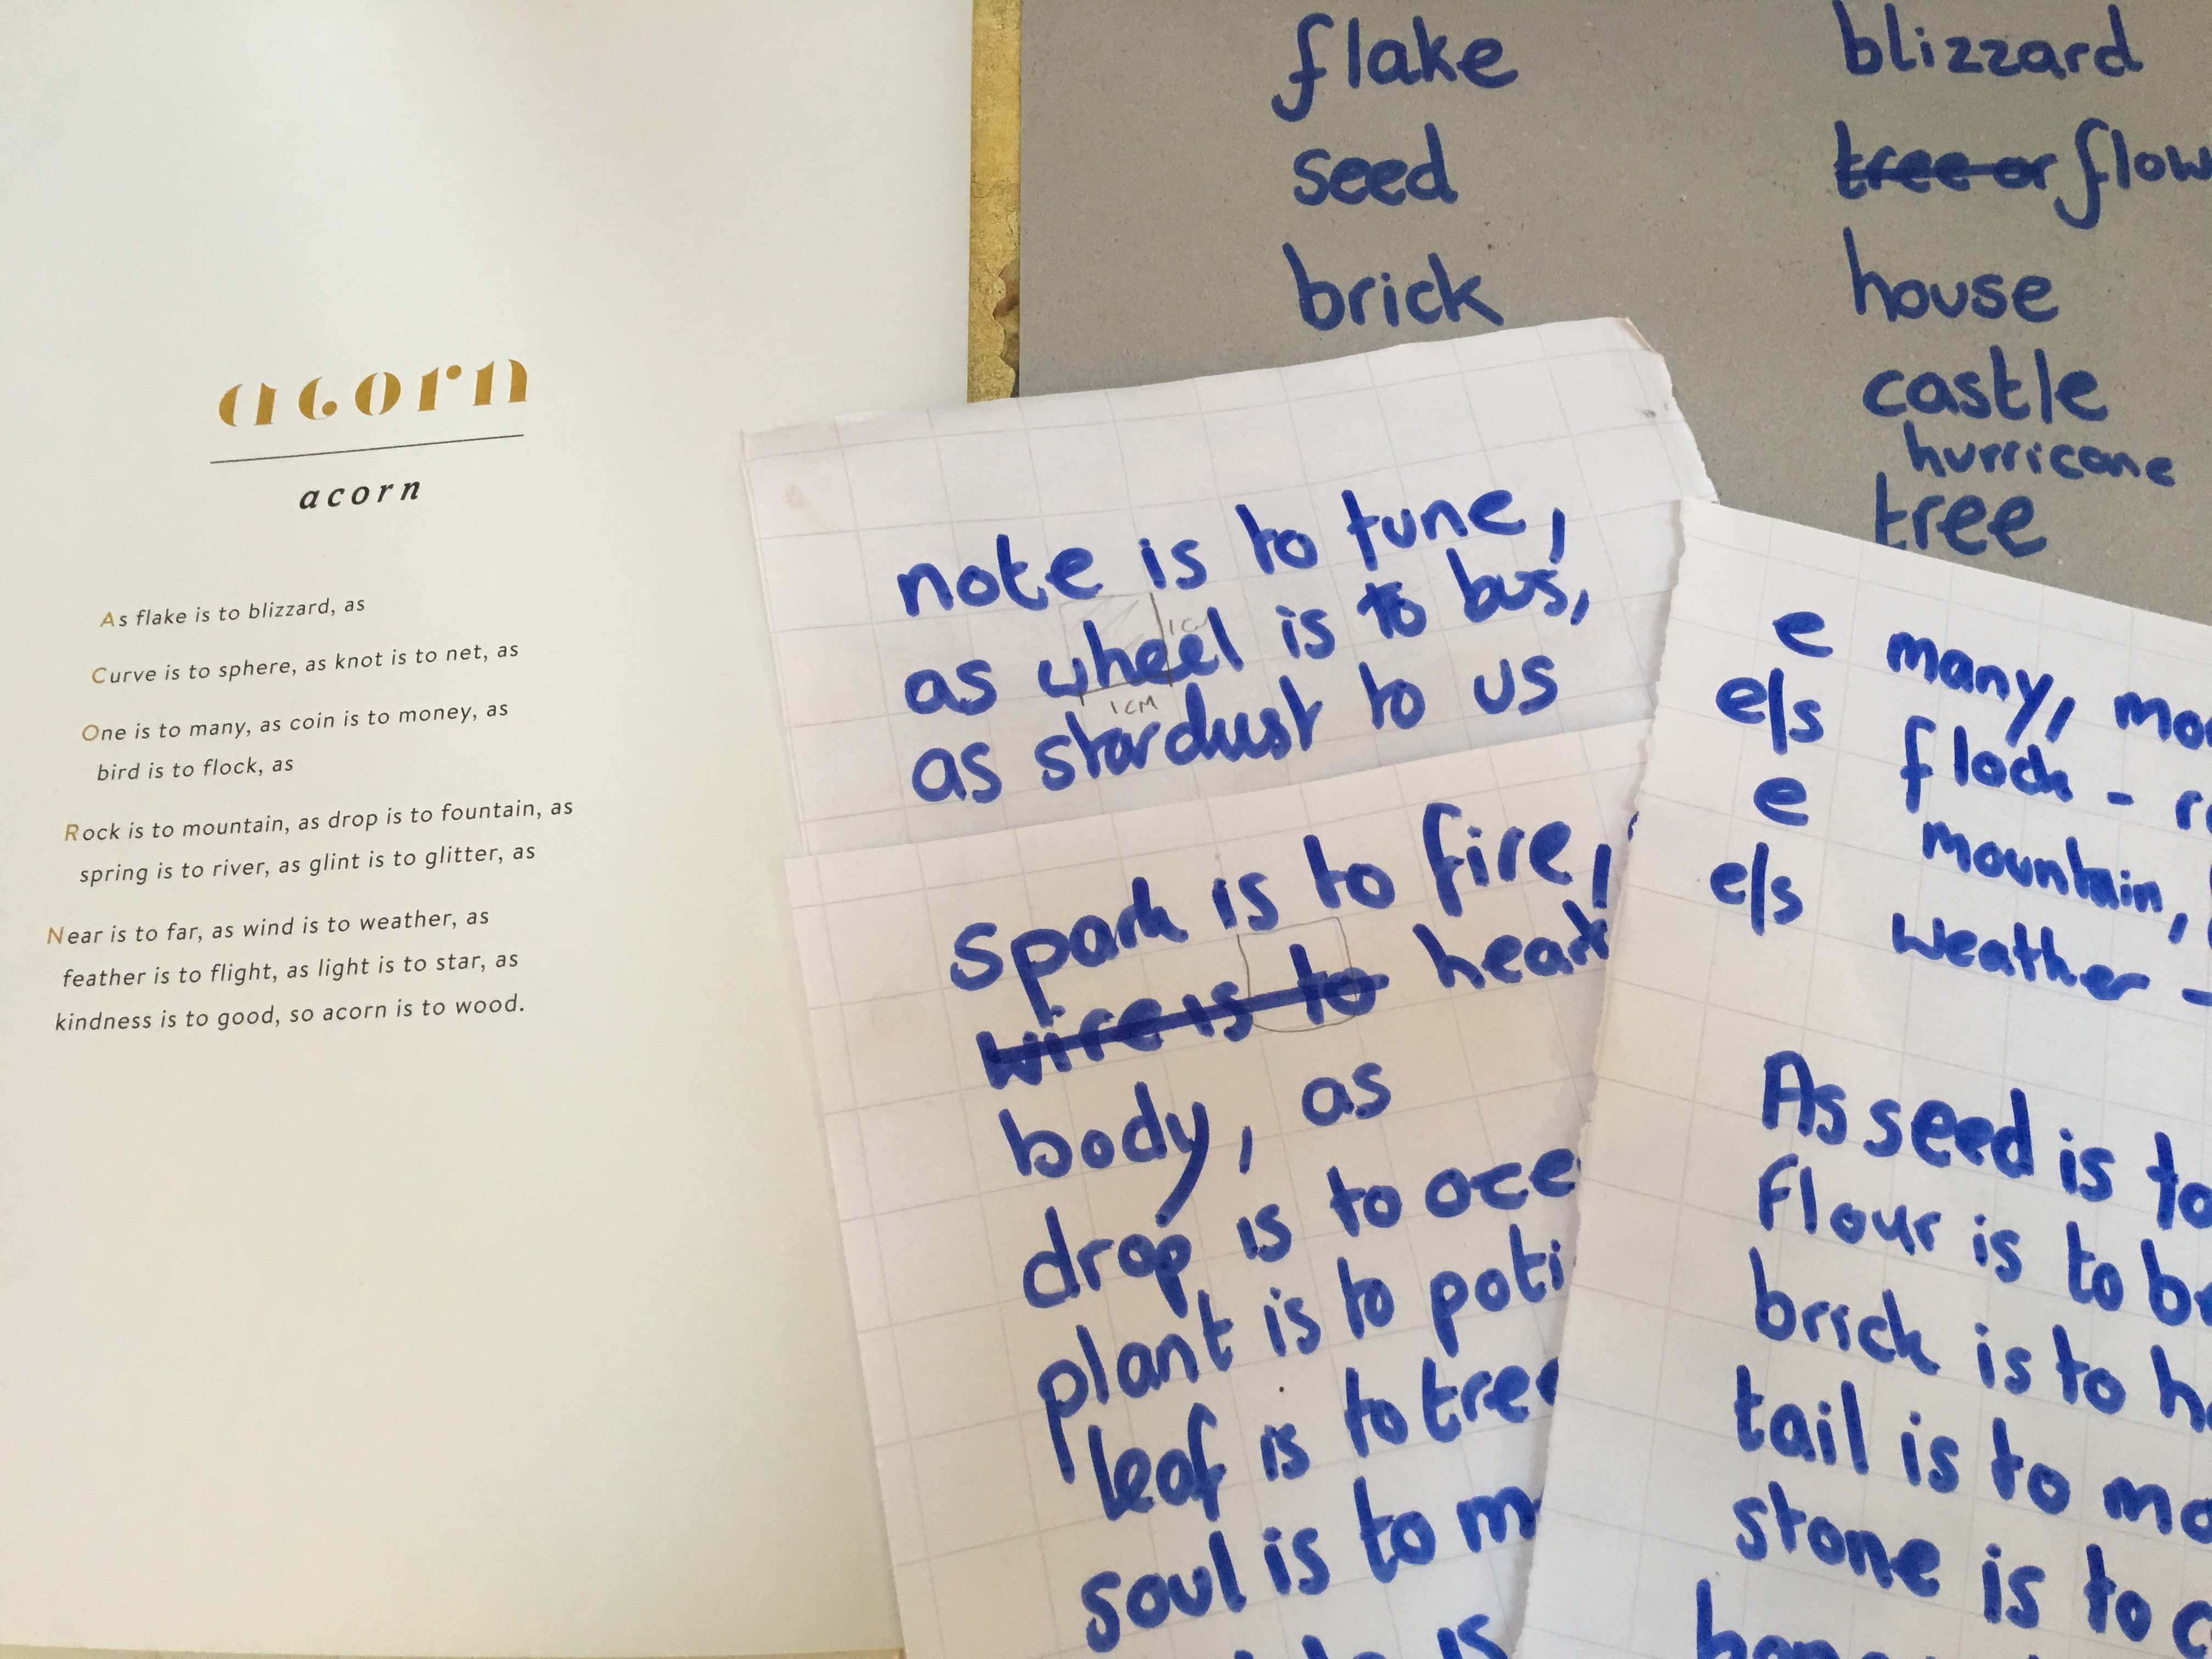 acorn
acorn
As flake is to blizzard, as
Curve is to sphere, as knot is to net, as
One is to many, as coin is to money, as
bird is to flock, as
Rock is to mountain, as drop is to fountain, as
spring is to river, as glint is to glitter, as
Near is to far, as wind is to weather, as
feather is to flight, as light is to star, as
kindness is to good, so acorn is to wood.
flake
seed
brick
blizzard
tree or
house
castle
hurricane
tree
note is to tune,
as wheel is to bus,
1CM
as stardust to us
spark is to fire,
wire is to
body, as
drop is to
plant is to
leaf is to
soul is to
e many,
e/s flock -
e mountain,
e/s weather -
As seed is to
flour is to
brick is to
tail is to
stone is to